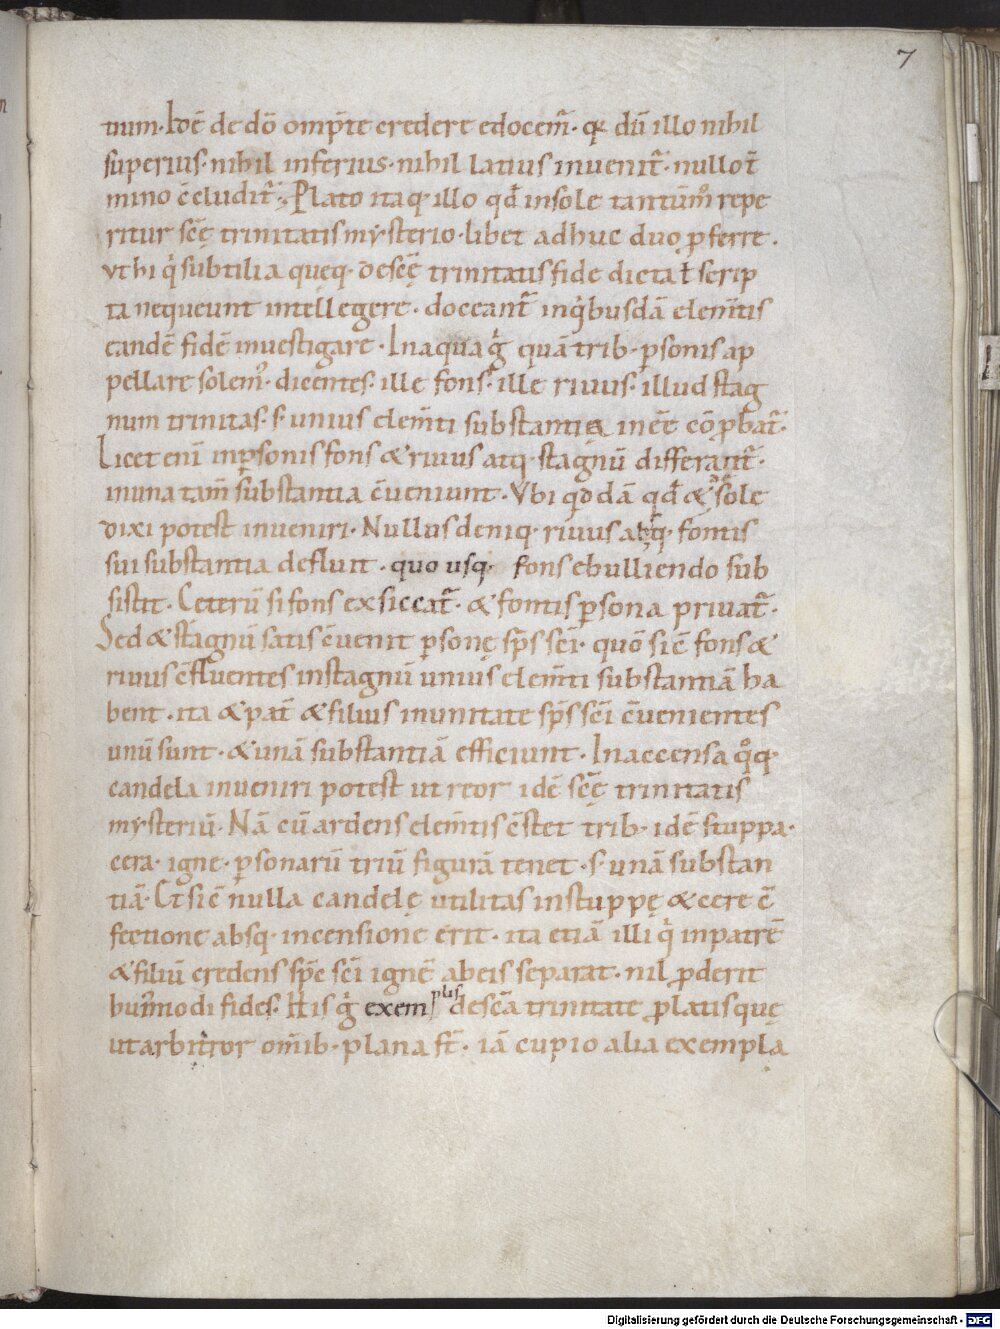 7
num· Idē de dō omp̄te credere edocem̄· qr dū illo nihil
superius· nihil inferius· nihil latius inuenit̄· nullo t̄
mino c̄cludit̄· Plato itaq· illo qđ in sole tantūmo repe
ritur scē trinitatis mysterio· libet adhuc duo p̄ferre·
vt hi qi subtilia queq· de scē trinitatis fide dicta ł scrip
ta nequeunt intellegere· doceant̄ in qibusdā elem̄tis
eandē fidē inuestigare· In aqua gi quā trib· psonis ap
pellare solem· dicentes· ille fons· ille riuus· illud stag
num trinitas· s· unius elem̄ti substantię inēe cōprobat̄·
Licet enī in psonis fons & riuus atq· stagnū differant̄·
in una tam̄ substantia c̄ueniunt· Vbi qdā qđ & sole
dixi potest inueniri· Nullus deniq· riuus absq· fontis
sui substantia defluit· quo usq· fons ebulliendo sub
sistit· Ceterū si fons exsiccat̄· & fontis psona priuat̄·
Sed & stagnū satis c̄uenit psonę sp̄s sc̄i· quō si c̄ fons &
riuus c̄fluentes in stagnū unius elem̄ti substantiā ha
bent· ita & pat̄ & filius in unitate sp̄s sc̄i c̄uenientes
unū sunt· & unā substantiā efficiunt· In accensa qoq·
candela inueniri potest ut reor idē scē trinitatis
mysteriū· Nā cū ardens elem̄tis c̄stet trib· idē stuppa·
cera· igne· psonarū triū figurā tenet· s· unā substan
tiā· Et sic nulla candelę utilitas in stuppę & cere c̄
fectione absq· incensione erit· ita etiā illi qi in patrē
& filiū credens sp̄c sc̄i ignē ab eis separat· nil pderit
hui modi fides· His gi exemplis de sc̄a trinitate platis quę
ut arbitror om̄ib· plana st̄· iā cupio alia exempla
Digitalisierung gefördert durch die Deutsche Forschungsgemeinschaft - DFG